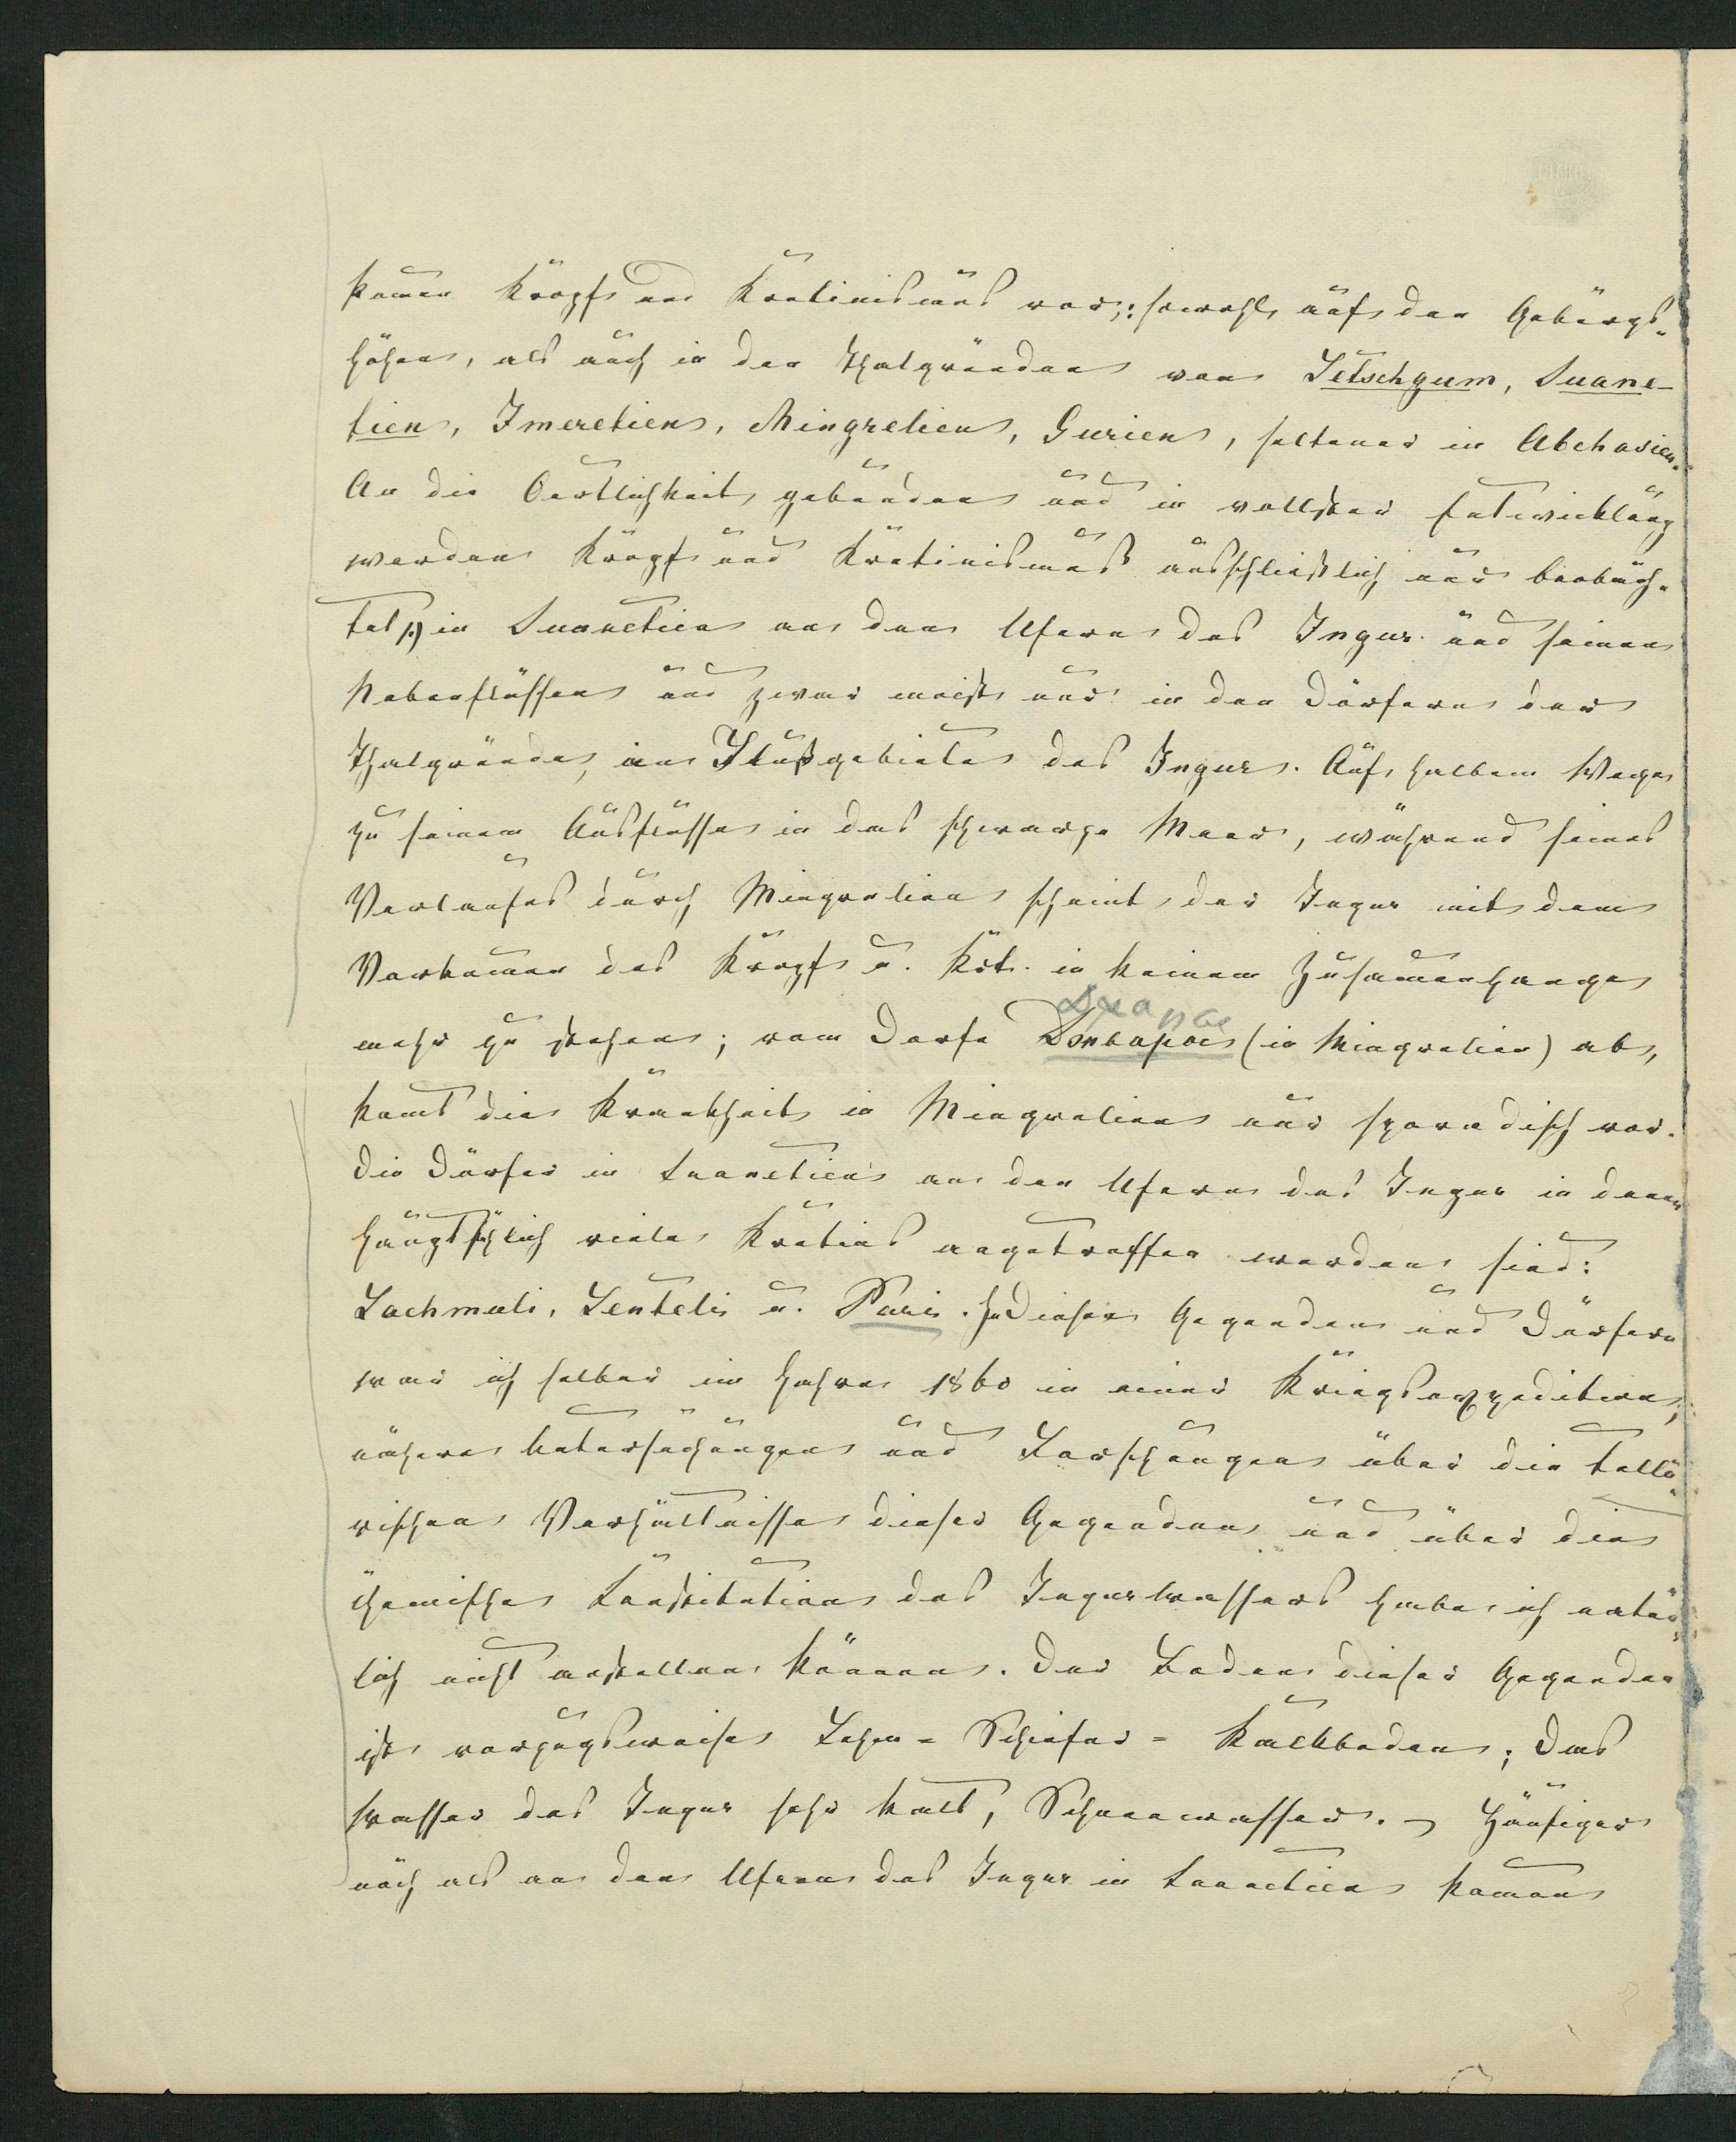 kom̄en Kropf und Kretinismus vor,: sowohl auf den Gebirgs-
höhen, als auch in den Thalgründen von Letschgum, Suane-
tien, Imeretien, Mingrelien, Gurien, seltener in Abchasien.
An die Oertlichkeit gebunden und in vollster Entwicklung
werden Kropf und Kretinismus ausschließlich nur beobach-
tet 1.) in Suanetien an den Ufern des Ingur und seinen
Nebenflüssen und zwar meist nur in den Dörfern der
Thalgründe, im Flußgebiete des Ingur. Auf halbem Wege
zu seinem Ausflusse in das schwarze Meer, während seines
Verlaufes durch Mingrelien scheint der Ingur mit dem
Vorkom̄en des Kropf u. Kret. in keinem Zusam̄enhange
mehr zu stehen; vom Dorfe (in Mingrelien) ab,
kom̄t die Krankheit in Mingrelien nur sporadisch vor.
Die Dörfer in Suanetien an den Ufern des Ingur in denen
hauptsächlich viele Kretins angetroffen werden sind:
Lachmuli, Lentelis u. Paris. In diesen Gegenden und Dörfern
war ich selber im Jahre 1860 in einer Kriegsexpedition,
nähere Untersuchungen und Forschungen über die tellu-
rischen Verhältnisse dieser Gegenden und über die
chemische Constitution des Ingurwassers habe ich natür-
lich nicht anstellen können. Der Boden dieser Gegenden
ist vorzugsweise Lehm- Schiefer- Kalkboden; das
Wasser des Ingur sehr kalt, Schneewasser. – Häufiger
noch als an den Ufern des Ingur in Suanetien kom̄en